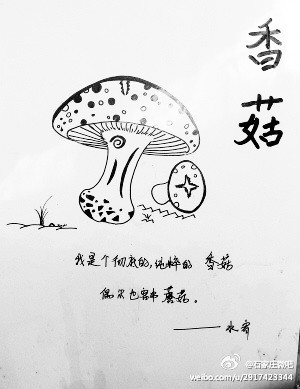 香菇
我是个彻底的,纯粹的 香菇
偶尔也客串 蘑菇。
@石家庄微吧
weibo.com/u/2917429344